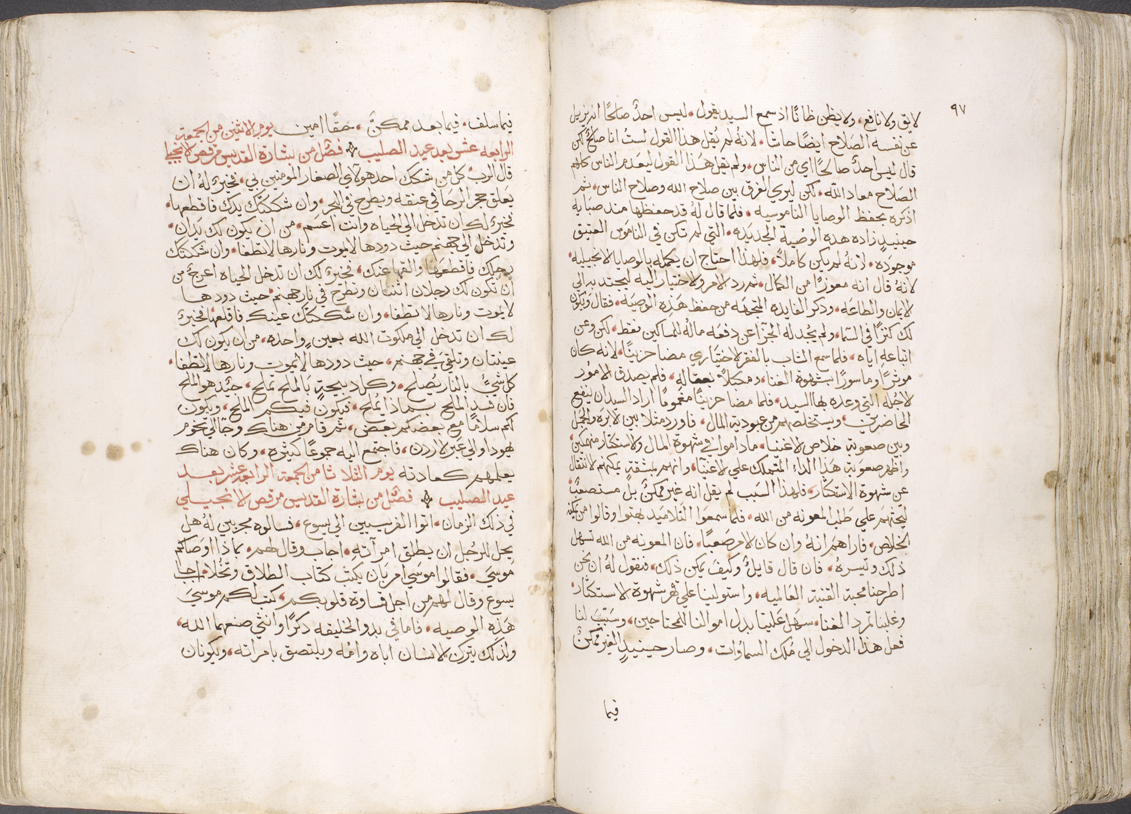 ٩٧
لايق ولا نافع، ولا يظن ظانًا اذ سمع السيد يقول، ليس احدٌ صالحًا انه يزيل
عن نفسه الصلاح ايضًا حاشا، لانه لم يقل هذا القول لستُ انا صالح لكن
قال ليس احدٌ صالحًا اي من الناس، ولم يقل هذا القول ليعدم الناس كلهم
الصلاح معاد الله، لكن ليري الفرق بين صلاح الله وصلاح الناس، ثم
اذكره بحفظ الوصايا الناموسيه، فلما قال له قد حفظها منذ صبايه
حينيد زاده هذه الوصية الجديده، التي لم تكن في الناموس العتيق
موجوده، لانه لم يكن كاملًا، فلهذا احتاج ان يكمله بالوصايا الانجيليه
لانه قال انه معوزًا من الكمال، ثم رد الامر والاختيار اليه ليجتدبه الي
الايمان والطاعه، وذكر الفايده المتجهه من حفظ هذه الوصيه، فقال ويكون
لك كنزًا في السما، ولم يجد له الجزا عن دفعه ماله للمساكين فقط، لكن وعن
اتباعه اياه، فلما سمع الشاب بالفقر الاختياري مضا حزينًا، لانه كان
موثرًا وماسورًا بشهوة الغنا، وممتلاءً بمقاله، فلم يصدق الامور
الاجله التي وعده بها السيد، فلما مضا حزينًا مغمومًا اراد السيد ان ينفع
الحاضرين، ويستخلصهم من عبودية المال، فاورد مثلا بين الابره والجمل
وبين صعوبة خلاص الاغنيا، ما داموا في شهوة المال والاستكثار منهمكين،
واظهر صعوبة هذا الداء المتملك علي الاغنيا، وانهم بمشقةٍ يمكنهم الانتقال
عن شهوة الاستكثار، فلهذا السبب لم يقل انه غير ممكنٌ بل مستصعبًا،
ليحثهم علي طلب المعونه من الله، فلما سمعوا التلاميد بهتوا وقالوا من يمكنه
الخلاص، فاراهم انه وان كان الامر صعبًا، فان المعونه من الله تسهل
ذلك وتيسره، فان قال قايلٌ وكيف يمكن ذلك، فنقول له ان نحن
اطرحنا محبة القنية العالميه، واستولينا علي قهر شهوة الاستكثار،
وغلبنا تمرد الغنا، سهل علينا بدل اموالنا للمحتاجين، وسبب لنا
فعل هذا الدخول الي ملك السماوات، وصار حينيدٍ الغير ممكنٌ
فيما
فيما سلف، فيما بعد ممكنٌ، حقًا امين يوم الاثنين من الجمعة
الرابعه عشر بعد عيد الصليب فصلٌ من بشارة القديس مرقص الانجيلي
قال الرب كل من شكك احد هولاي الصغار المومنين بي، فخيرٌ له ان
يعلق حجر الرحا في عنقه ويطرح في البحر، وان شككتك يدك فاقطعها،
فخيرٌ لك ان تدخل الي الحياه وانت اعسم، من ان يكون لك يدان،
وتدخل الي جهنم حيث دودها لا يموت ونارها لا تطفا، وان شككتك
رجلك فاقطعها والقها عنك، فخيرٌ لك ان تدخل الحياه اعرج من
ان تكون لك رجلان اثنتان وتطرح في نار جهنم، حيث دودها
لا يموت ونارها لا تطفا، وان شككتك عينك فاقلعها فخيرٌ
لك ان تدخل الي ملكوت الله بعين واحده، من ان يكون لك
عينتان وتلقي في جهنم، حيث دودها لا يموت ونارها لا تطفا،
كل شي بالنار يصلح، وكل دبيحةٍ بالملح تملح، جيدٌ هو الملح
فان فسد الملح بماذا يملح، فيكون فيكم الملح، ويكون
لكم سلامًا مع بعضكم بعض، ثم قام من هناك وجا الي تخوم
يهودا والي عبر الاردن، فاجتمع اليه جموعًا كثيره، وكان هناك
يعلمهم كعادته يوم الثلاثا من الجمعة الرابعه عشر بعد
عيد الصليب فصلٌ من بشارة القديس مرقص الانجيلي
في ذلك الزمان، اتوا الفريسيين الي يسوع، فسالوه مجربين له هل
يحل للرجل ان يطلق امراته، اجاب وقال لهم، بماذا اوصاكم
موسي، فقالوا موسي امر بان يكتب كتاب الطلاق وتخلا، فاجاب
يسوع وقال لهم من اجل قساوة قلوبكم، كتب لكم موسي
هذه الوصيه، فاما في بدو الخليقه ذكرًا وانثي صنعهما الله،
ولذلك يترك الانسان اباه وامه ويلتصق بامراته، ويكونان